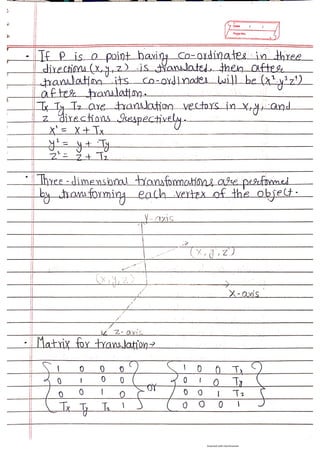 • If P is a point having co-ordinates in three
directions (x, y, z) is translated, then after
translation its co-ordinates will be (x' y' z')
after translation.
Tx Ty Tz are translation vectors in x, y, and
z directions respectively.
x' = x + Tx
y' = y + Ty
z' = z + Tz
• Three-dimensional transformations are performed
by transforming each vertex of the object.
y-axis
(x, y, z')
(x, y, z)
x-axis
z-axis
• Matrix for translation→
1 0 0 0
0 1 0 0
0 0 1 0
Tx Ty Tz 1
or
1 0 0 Tx
0 1 0 Ty
0 0 1 Tz
0 0 0 1